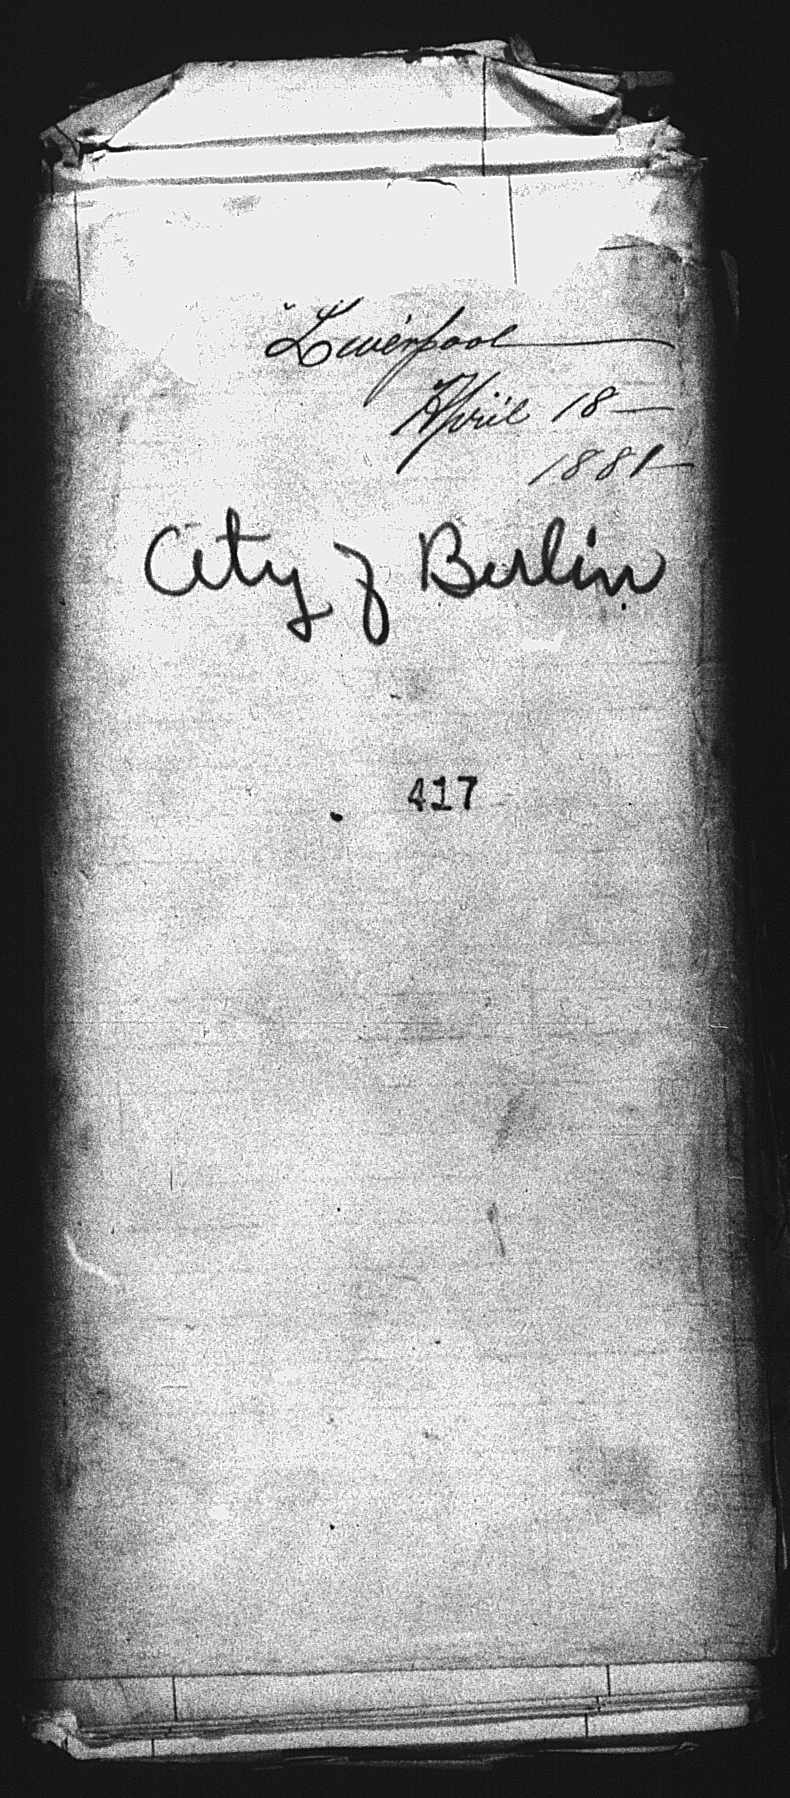 Liverpool
April 18
1881
City of Berlin
417